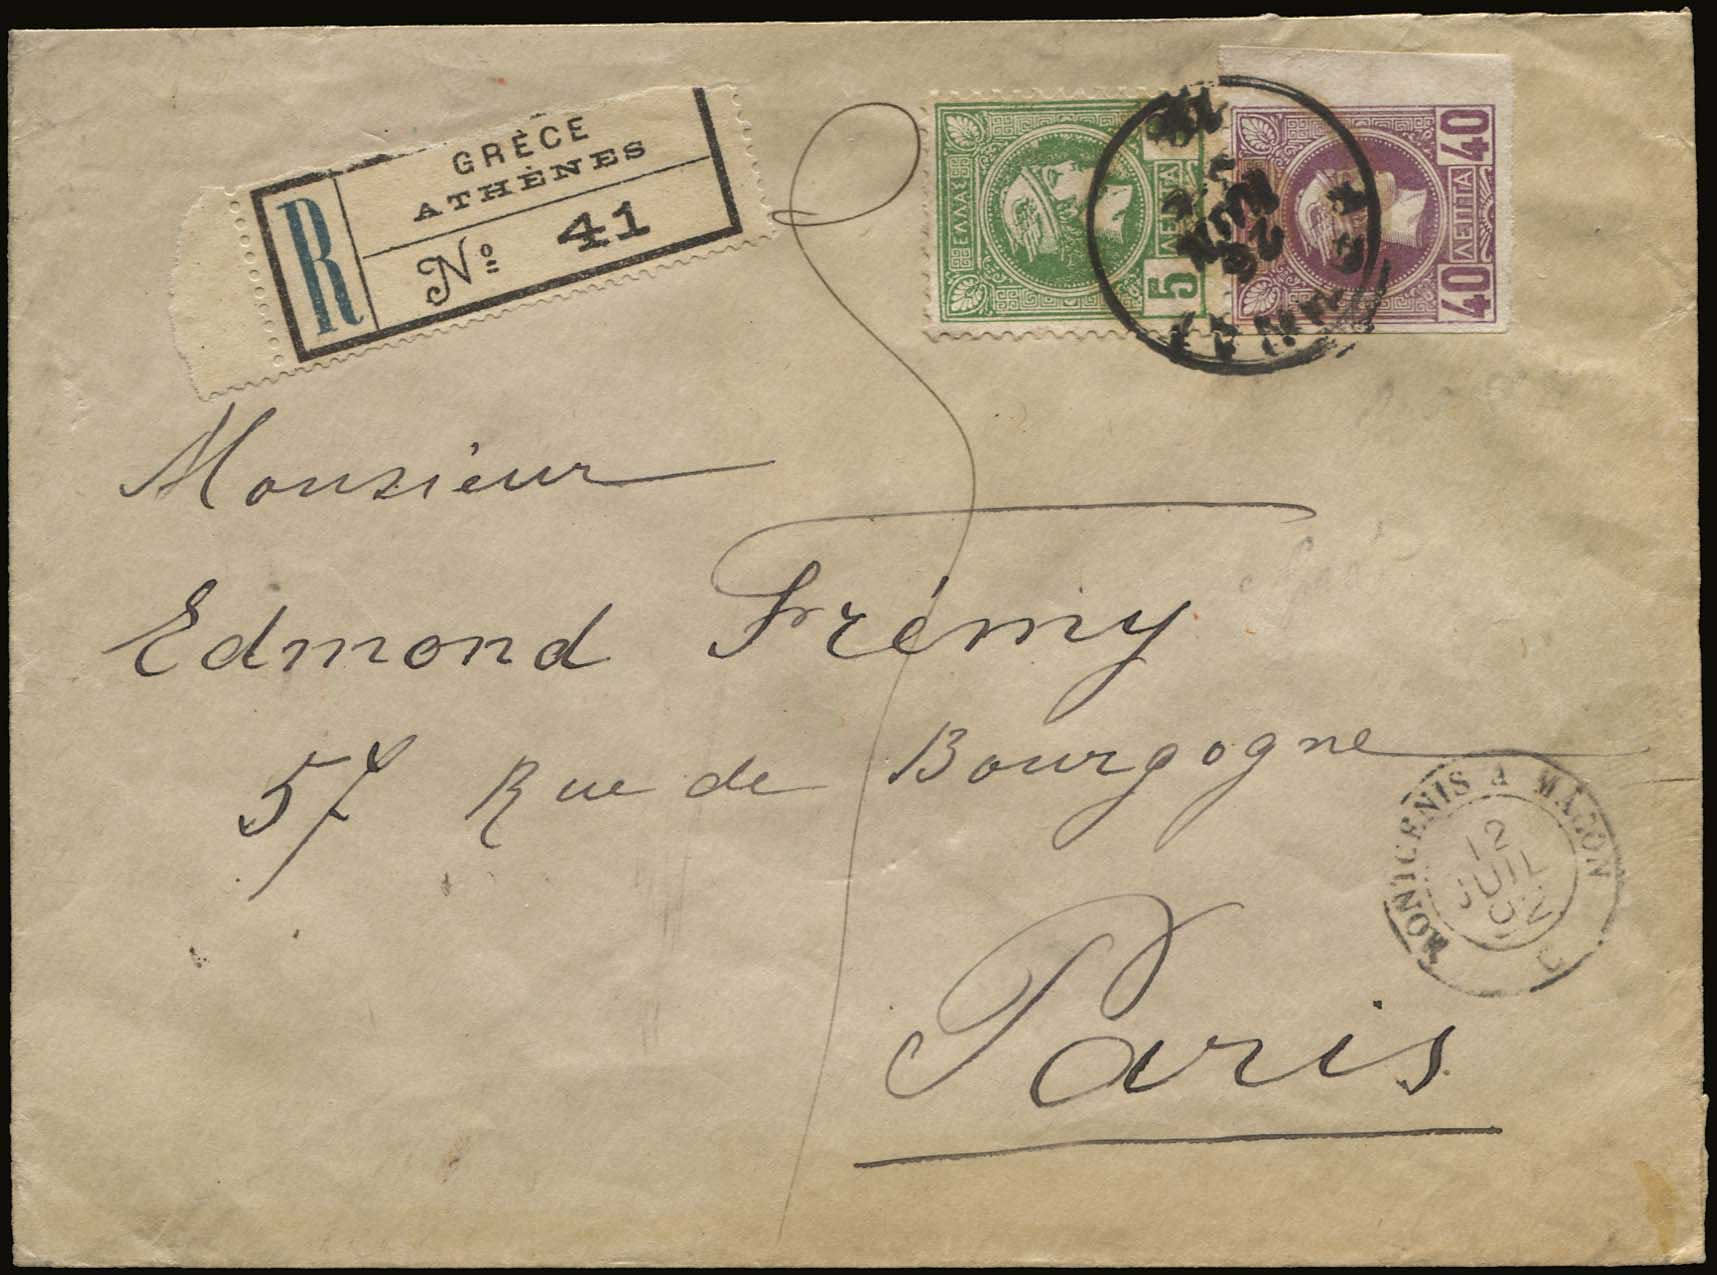 GRÈCE
ATHÈNES
R
Nº 41
ΕΛΛΑΣ
5 ΛΕΠΤΑ
40 ΛΕΠΤΑ 40
Monsieur
Edmond Frémy
57 Rue de Bourgogne
Paris
MONTCENIS A MACON
12
JUIL